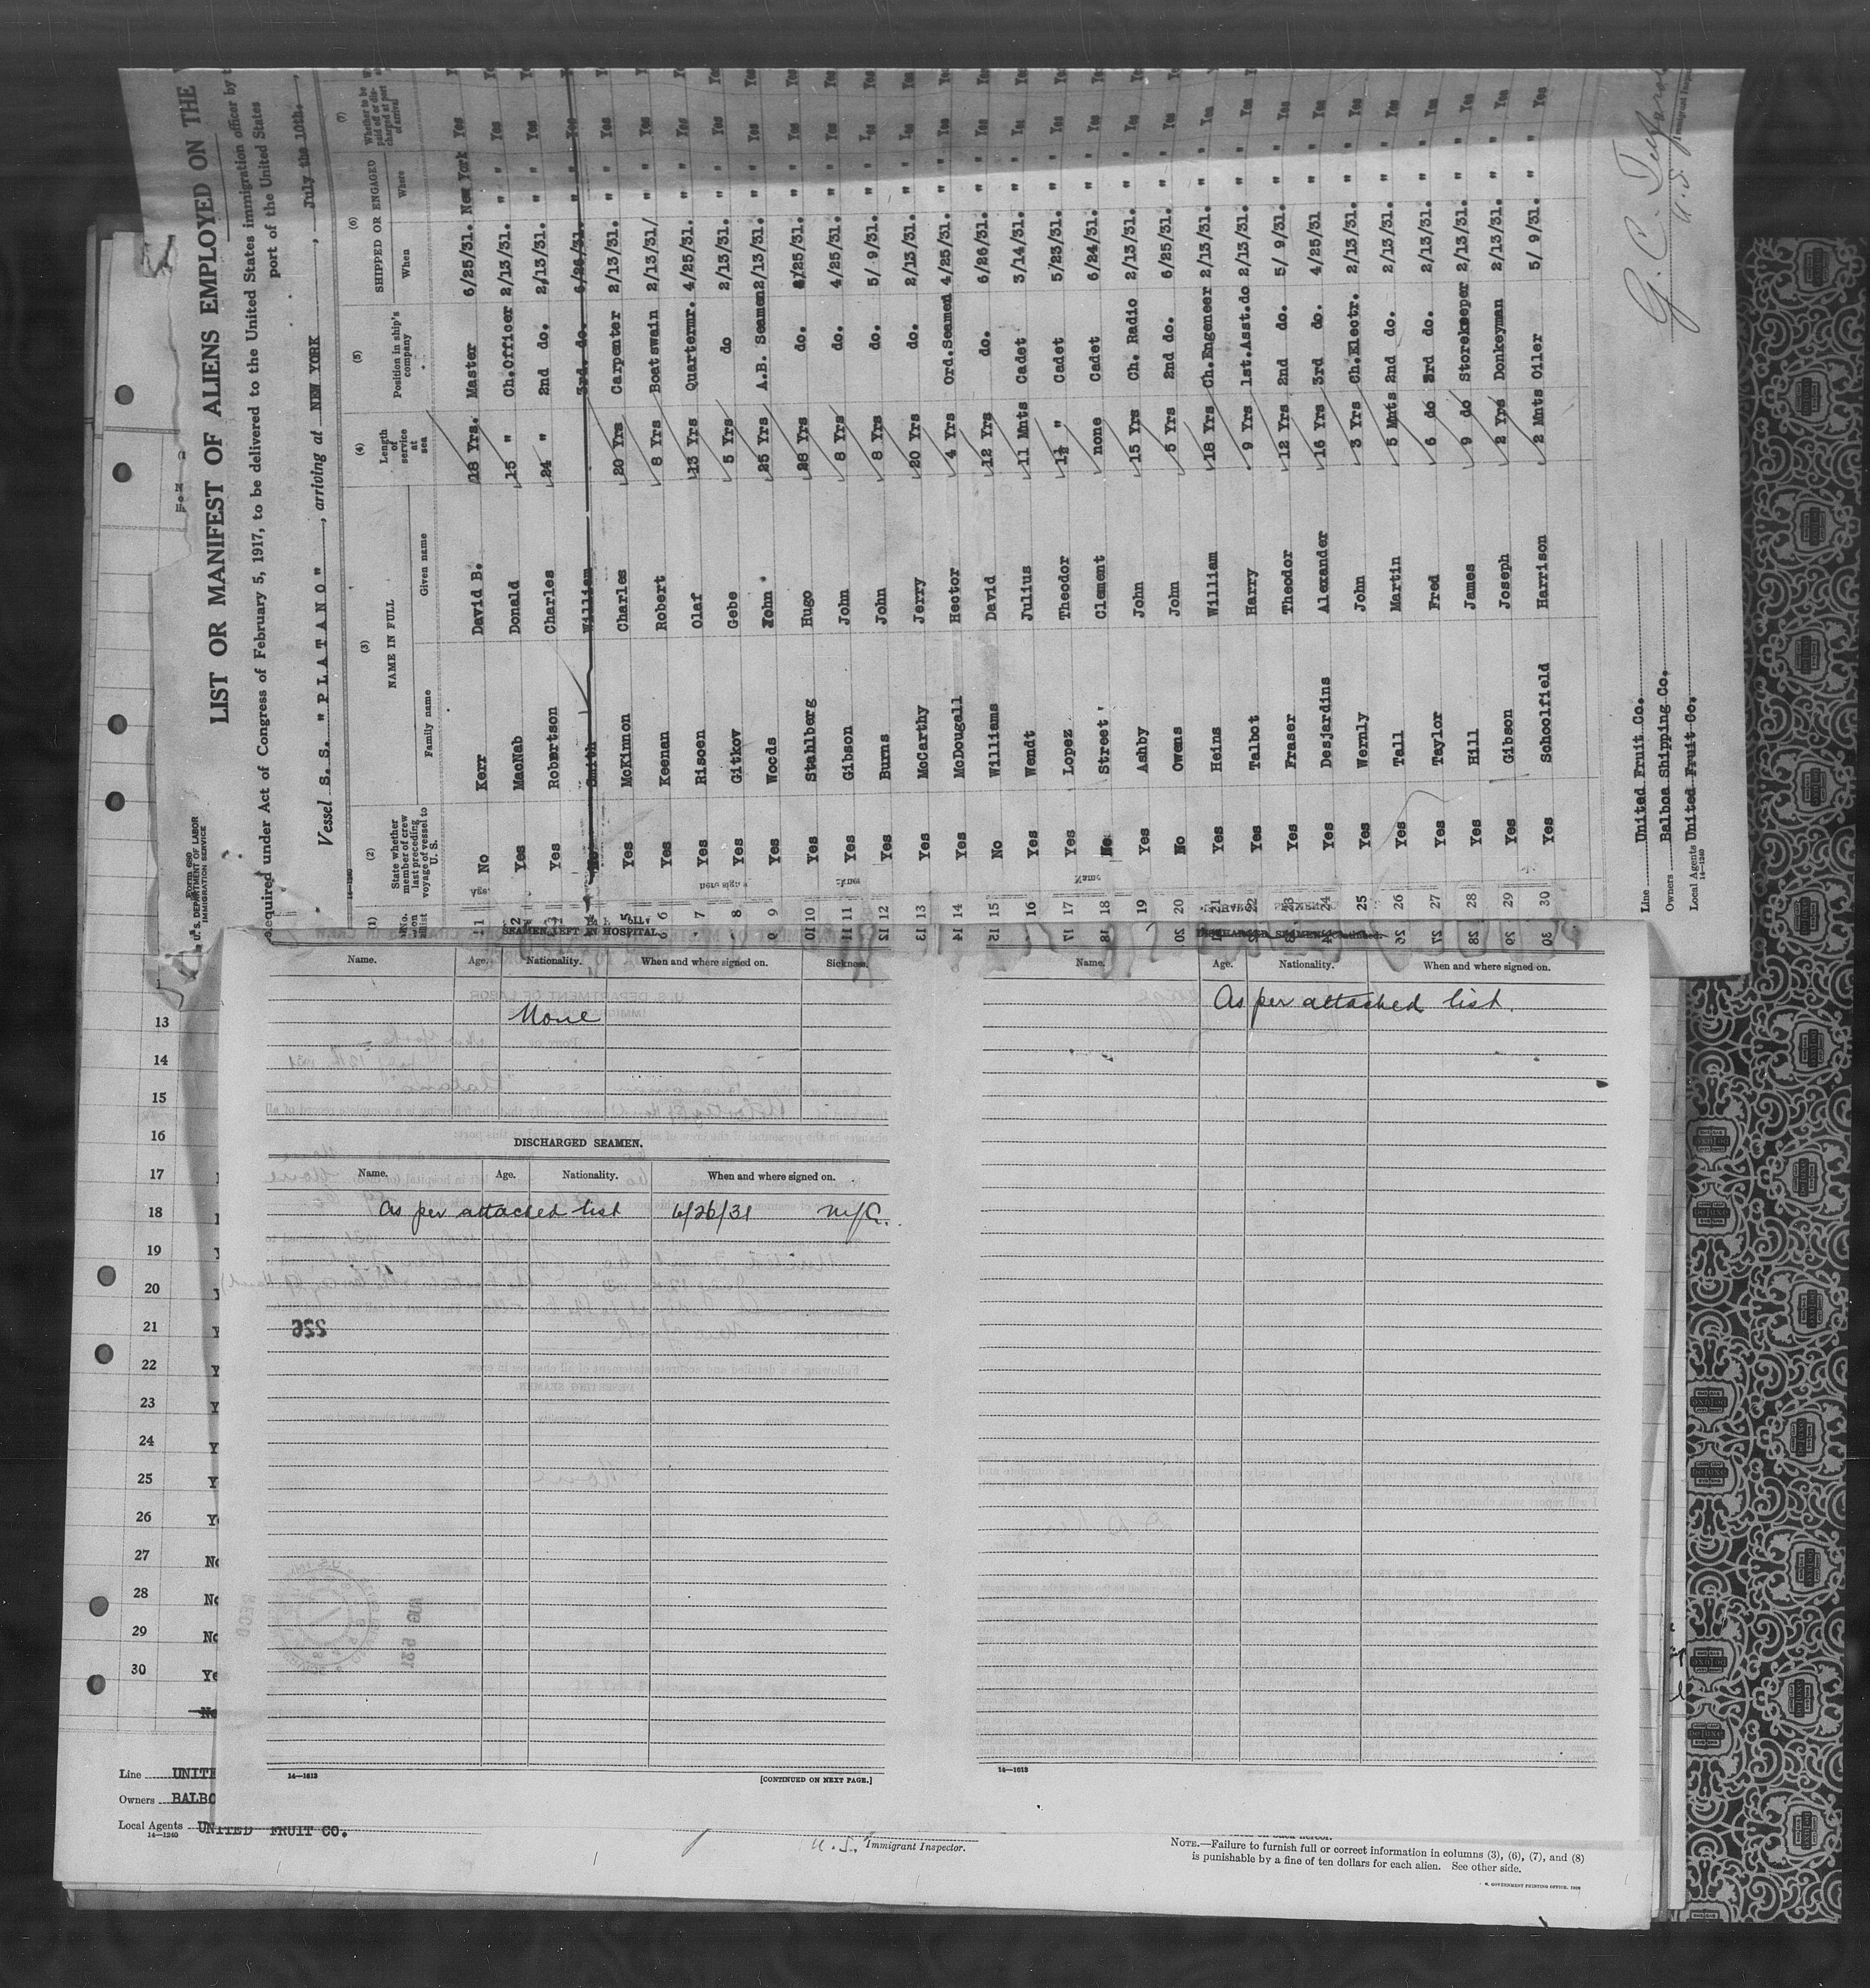 Form 680
U. S. DEPARTMENT OF LABOR
IMMIGRATION SERVICE
LIST OR MANIFEST OF ALIENS EMPLOYED ON THE
required under Act of Congress of February 5, 1917, to be delivered to the United States immigration officer by
port of the United States
Vessel S. S. "PLATANO", arriving at NEW YORK, July the 10th.,
14—1240
(1) (2) (3) (4) (5) (6) (7)
No. on list
State whether member of crew last preceding voyage of vessel to U. S.
NAME IN FULL
Family name Given name
Length of service at sea
Position in ship's company
SHIPPED OR ENGAGED
When Where
Whether to be paid off or discharged at port of arrival
1 No Kerr David B. 18 Yrs. Master 6/25/31. New York Yes
2 Yes MacNab Donald 15 " Ch.Officer 2/13/31. " " Yes
3 Yes Robertson Charles 24 " 2nd do. 2/13/31. " " Yes
4 No Smith William 3rd. do. 6/26/31. " " Yes
5 Yes McKinnon Charles 20 Yrs Carpenter 2/13/31. " " Yes
6 Yes Keenan Robert 8 Yrs Boatswain 2/13/31/ " " Yes
7 Yes Risoen Olaf 13 Yrs Quartermr. 4/25/31. " " Yes
8 Yes Gitkov Gebe 5 Yrs do 2/13/31. " " Yes
9 Yes Woods John 25 Yrs A.B. Seamen 2/13/31. " " Yes
10 Yes Stahlberg Hugo 28 Yrs do. 4/25/31. " " Yes
11 Yes Gibson John 8 Yrs do. 4/25/31. " " Yes
12 Yes Burns John 8 Yrs do. 5/ 9/31. " " Yes
13 Yes McCarthy Jerry 20 Yrs do. 2/13/31. " " Yes
14 Yes McDougall Hector 4 Yrs Ord.Seamen 4/25/31. " " Yes
15 No Williams David 12 Yrs do. 6/26/31. " " Yes
16 Yes Wendt Julius 11 Mnts Cadet 3/14/31. " " Yes
17 Yes Lopez Theodor 1½ " Cadet 5/23/31. " " Yes
18 No Street Clement none Cadet 6/24/31. " " Yes
19 Yes Ashby John 15 Yrs Ch. Radio 2/13/31. " " Yes
20 No Owens John 5 Yrs 2nd do. 6/25/31. " " Yes
21 Yes Heins William 18 Yrs Ch.Engeneer 2/13/31. " " Yes
22 Yes Talbot Harry 9 Yrs 1st.Asst.do 2/13/31. " " Yes
23 Yes Fraser Theodor 12 Yrs 2nd do. 5/ 9/31. " " Yes
24 Yes Desjardins Alexander 16 Yrs 3rd do. 4/25/31 " " Yes
25 Yes Wernly John 3 Yrs Ch.Electr. 2/13/31. " " Yes
26 Yes Tall Martin 5 Mnts 2nd do. 2/13/31. " " Yes
27 Yes Taylor Fred 6 do 3rd do. 2/13/31. " " Yes
28 Yes Hill James 9 do Storekeeper 2/13/31. " " Yes
29 Yes Gibson Joseph 2 Yrs Donkeyman 2/13/31. " " Yes
30 Yes Schoolfield Harrison 2 Mnts Oiler 5/ 9/31. " " Yes
Line United Fruit Co.
Owners Balboa Shipping.Co.
Local Agents United Fruit Co.
14—1240
G. C.
U. S.
SEAMEN LEFT IN HOSPITAL
Name. Age. Nationality. When and where signed on. Sickness.
None
DISCHARGED SEAMEN.
Name. Age. Nationality. When and where signed on.
As per attached list 6/26/31 N.Y.C.
14—1613
[CONTINUED ON NEXT PAGE.]
DISCHARGED SEAMEN—Continued.
Name. Age. Nationality. When and where signed on.
As per attached list.
14—1613
13
14
15
16
17
18
19
20
21
22
23
24
25
26
27
28
29
30
Line UNITE
Owners BALBO
Local Agents UNITED FRUIT CO.
14—1240
U. S. Immigrant Inspector.
NOTE.—Failure to furnish full or correct information in columns (3), (6), (7), and (8)
is punishable by a fine of ten dollars for each alien. See other side.
GOVERNMENT PRINTING OFFICE